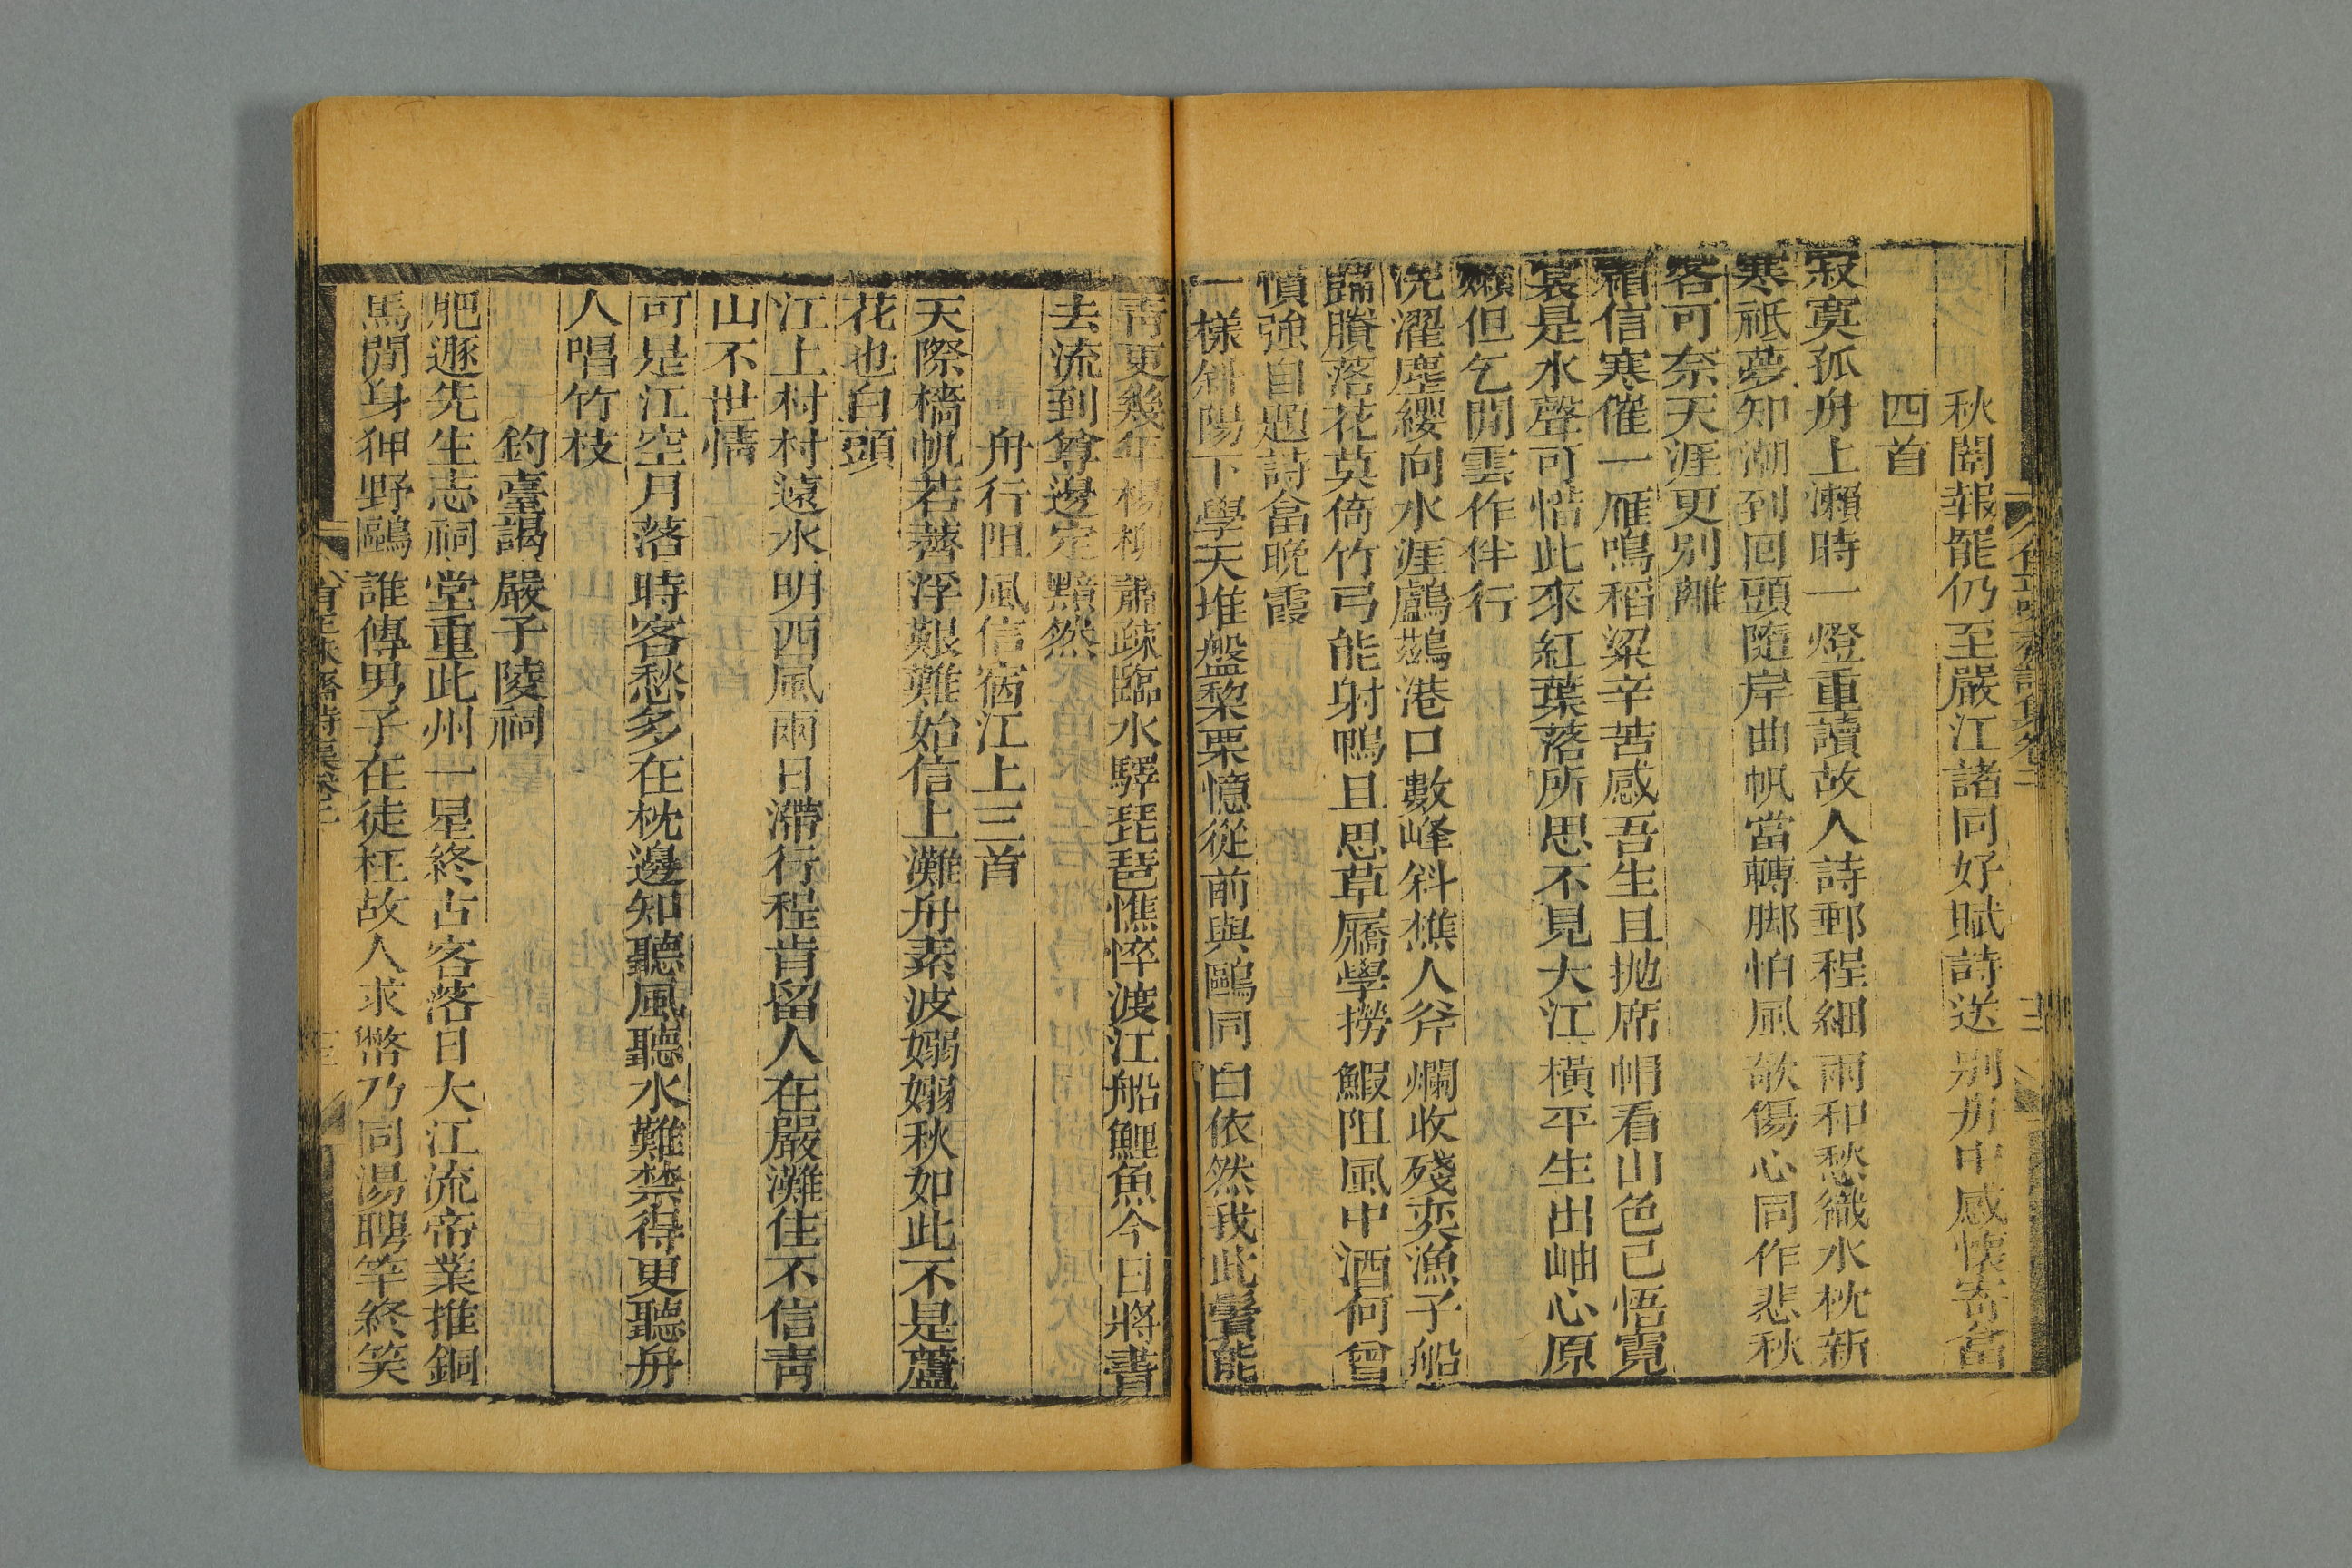 秋闈報罷仍至嚴江諸同好賦詩送別舟中感懷寄畣
四首
寂寞孤舟上瀨時一燈重讀故人詩郵程細雨和愁織水枕新
寒祗夢知潮到回頭隨岸曲帆當轉脚怕風欹傷心同作悲秋
客可奈天涯更别離
霜信寒催一雁鳴稻粱辛苦感吾生且抛席帽看山色已悟寛
裳是水聲可惜此來紅葉落所思不見大江橫平生出岫心原
嬾但乞閒雲作伴行
浣濯塵纓向水涯鸕鷀港口數峰斜樵人斧爛收殘奕漁子船
歸賸落花莫倚竹弓能射鴨且思草屩學撈鰕阻風中酒何曾
慣強自題詩畣晚霞
一樣斜陽下學天堆盤棃栗憶從前與鷗同白依然我此鬢能
青更幾年楊柳蕭疎臨水驛琵琶憔悴渡江船鯉魚今日將書
去流到尊邊定黯然
舟行阻風信宿江上三首
天際檣帆若薺浮艱難始信上灘舟素波嫋嫋秋如此不是蘆
花也白頭
江上村村遠水明西風兩日滯行程肯留人在嚴灘住不信青
山不世情
可是江空月落時客愁多在枕邊知聽風聽水難禁得更聽舟
人唱竹枝
釣臺謁嚴子陵祠
肥遯先生志祠堂重此州一星終古客落日大江流帝業推銅
馬閒身狎野鷗誰傳男子在徒枉故人求幣乃同湯聘竿終笑